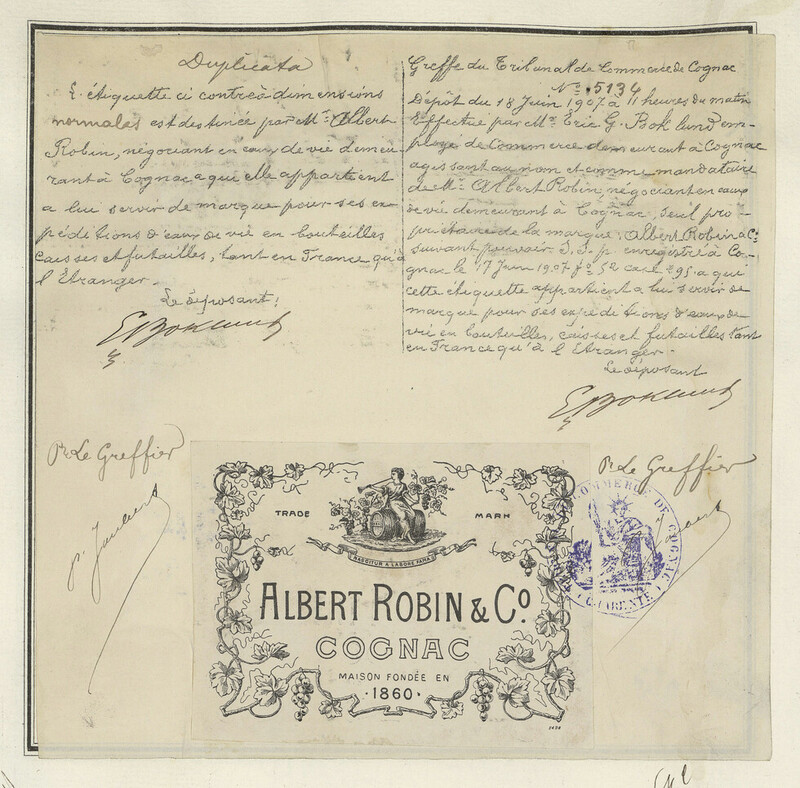 Duplicata
L'étiquette ci contre à dimensions
normales est destinée par Mr. Albert
Robin, négociant en eaux de vie demeu
rant à Cognac a qui elle appartient
a lui servir de marque pour ses ex-
péditions d'eaux de vie en bouteilles
caisses et futailles, tant en France qu'à
l'Etranger.
Le déposant:
Greffe du Tribunal de Commerce de Cognac
No. 5134
Dépôt du 18 Juin 1907 à 11 heures du matin
Effectué par Mr. Eric G. Boklund em-
ployé de Commerce demeurant à Cognac
agissant au nom et comme mandataire
de Mr. Albert Robin, négociant en eaux
de vie demeurant à Cognac, seul pro-
priétaire de la marque: Albert Robin & Co
suivant pouvoir S.S.p. enregistré à Co-
gnac le 17 Juin 1907 fo 52 case 895 a qui
cette étiquette appartient a lui servir de
marque pour ses expéditions d'eaux de
vie en bouteilles, caisses et futailles tant
en France qu'à l'Etranger.
Le déposant
Pr. Le Greffier
Pr. Le Greffier
TRADE MARK
NASCITUR A LABORE FAMA
ALBERT ROBIN & Co.
COGNAC
MAISON FONDÉE EN
·1860·
COMMERCE DE COGNAC
CHARENTE